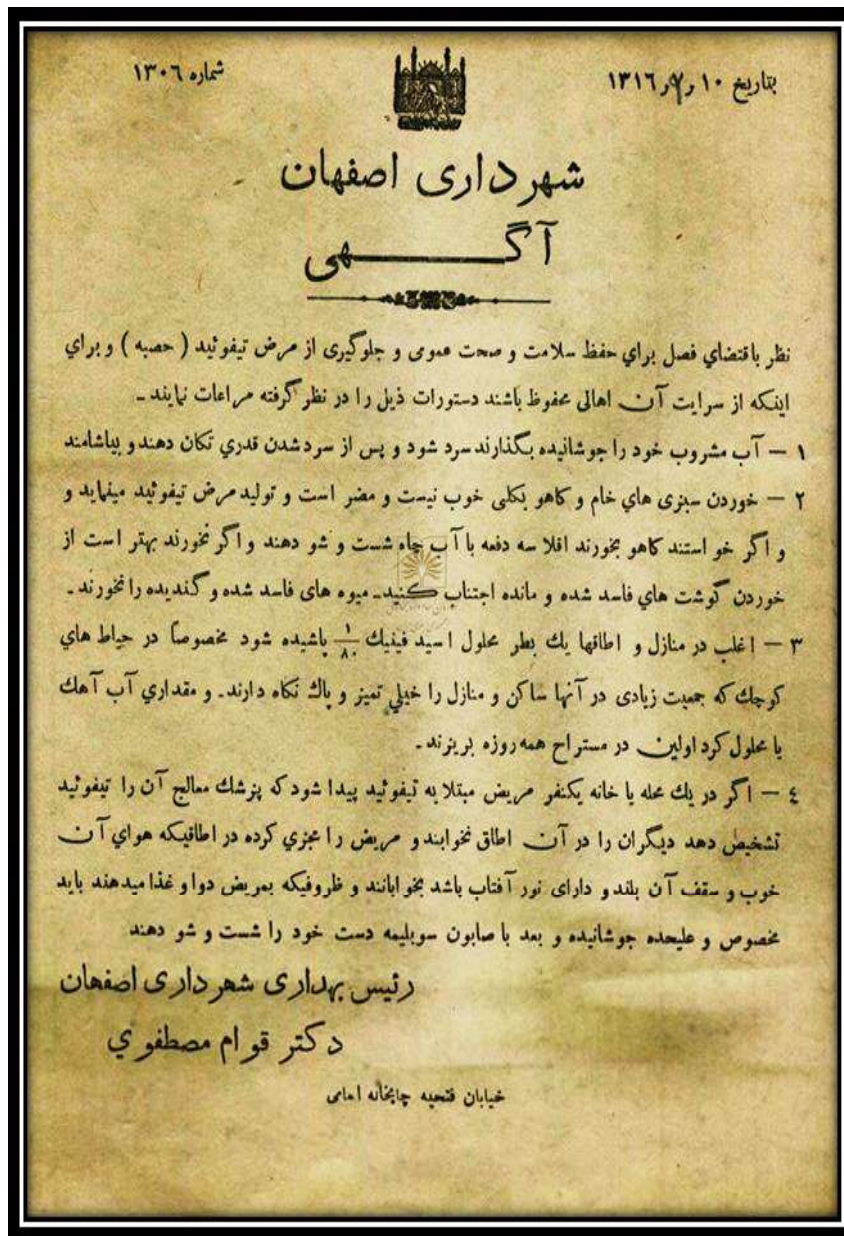 بتاریخ ۱۰ر۷ر۱۳۱۶
شماره ۱۳۰۶
شهرداری اصفهان
آگهی
نظر باقتضاي فصل براي حفظ سلامت و صحت عمومی و جلوگیری از مرض تیفوئید ( حصبه ) و براي
اینکه از سرایت آن اهالی محفوظ باشند دستورات ذیل را در نظر گرفته مراعات نمایند ـ
۱ – آب مشروب خود را جوشانیده بگذارند سرد شود و پس از سرد شدن قدري تکان دهند و بیاشامند
۲ – خوردن سبزی هاي خام و کاهو بکلی خوب نیست و مضر است و تولید مرض تیفوئید مینماید و
و اگر خواستند کاهو بخورند اقلا سه دفعه با آب چاه شست و شو دهند و اگر نخورند بهتر است از
خوردن گوشت هاي فاسد شده و مانده اجتناب کنید ـ میوه های فاسد شده و گندیده را نخورند ـ
۳ – اغلب در منازل و اطاقها یك بطر محلول اسید فینیك ۱/۸۰ پاشیده شود مخصوصاً در حیاط هاي
کوچك که جمعیت زیادی در آنها ساکن و منازل را خیلي تمیز و پاك نگاه دارند. و مقداري آب آهك
یا محلول کرد اولین در مستراح همه روزه بریزند ـ
٤ – اگر در یك محله یا خانه یکنفر مریض مبتلا به تیفوئید پیدا شود که پزشك معالج آن را تیفوئید
تشخیص دهد دیگران را در آن اطاق نخوابند و مریض را مجزي کرده در اطاقیکه هواي آن
خوب و سقف آن بلند و دارای نور آفتاب باشد بخوابانند و ظروفیکه بمریض دوا و غذا میدهند باید
مخصوص و علیحده جوشانیده و بعد با صابون سوبلیمه دست خود را شست و شو دهند
رئیس بهداری شهرداری اصفهان
دکتر قوام مصطفوي
خیابان فتحیه چاپخانه امامی